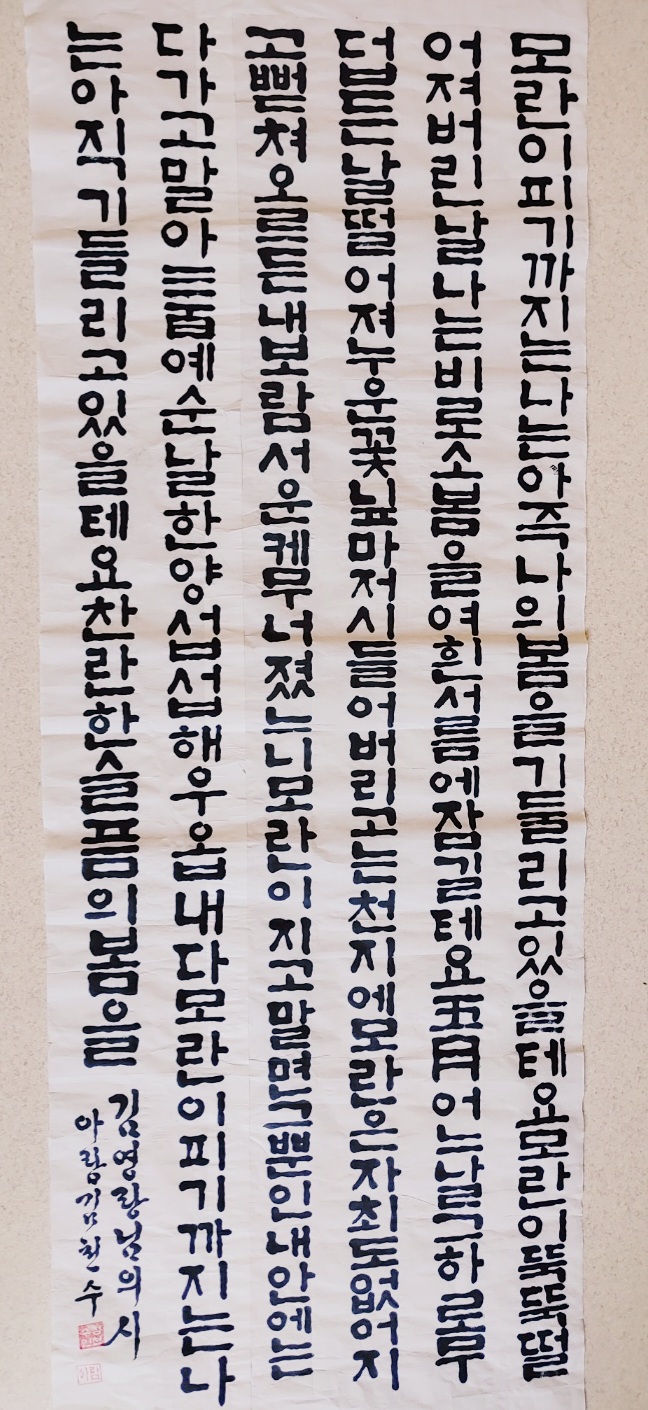 모란이피기까지는나는아즉나의봄을기둘리고있을테요모란이뚝뚝떨
어져버린날나는비로소봄을여흰서름에잠길테요五月어느날그하로무
덥든날떨어져누운꽃닢마저시들어버리고는천지에모란은자최도없어지
고뻗쳐오르든내보람서운케무너졌느니모란이지고말면그뿐인내안에는
다가고말아三百예순날한양섭섭해우옵내다모란이피기까지는나
는아직기들리고있을테요찬란한슬픔의봄을
김영랑님의시
아랑김천수